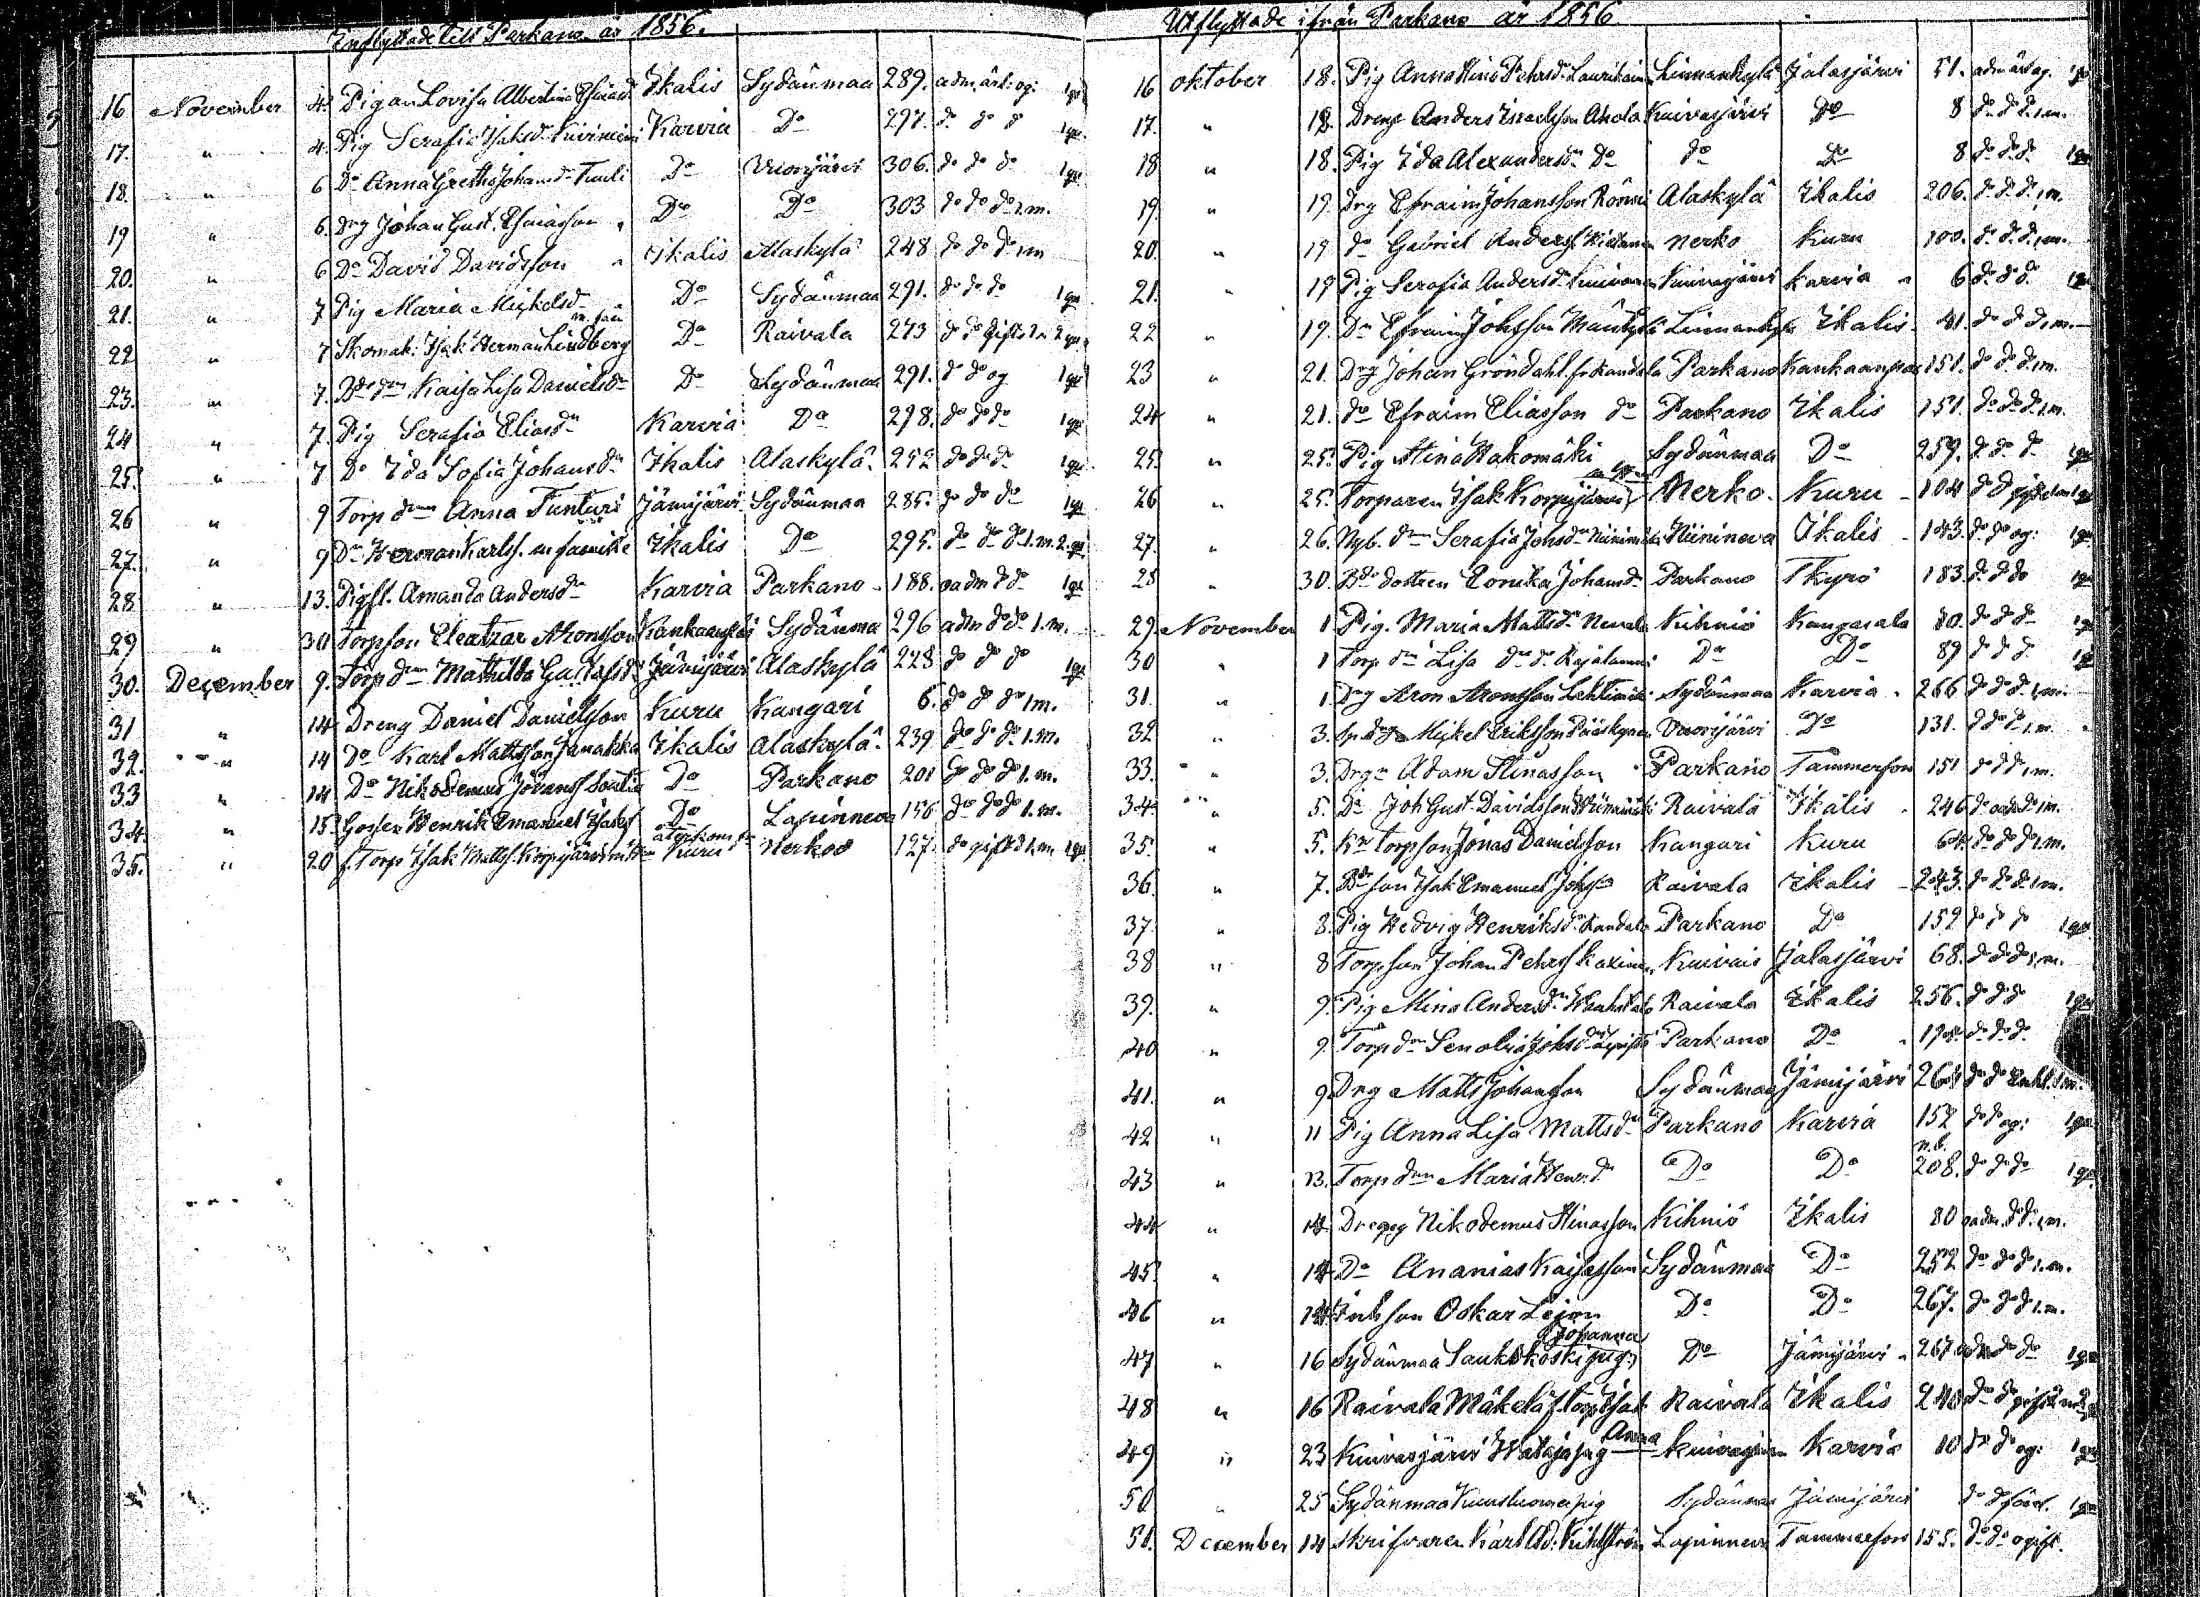 Inflyttade till Parkano år 1856.
16 November 4. Pigan Lovisa Albertina Esaiasd Ikalis Sydänmaa 289. adm. ärl. og: 1 qv
17. " 4. Pig Serafia Isaksdr Karvia Do 297. do do do 1 qv.
18. " 6 Do Anna Gretha Johansdr Tuuli Do Vuorijärvi 306. do do do 1 qv
19 " 6. Drg Johan Gust. Esaiasson " Do Do 303 do do do 1 m.
20. " 6 Do David Davidsson " Ikalis Alaskylä 248 do do do 1 m
21. " 7 Pig Maria Mickelsdr Do Sydänmaa 291. do do do 1 qv.
22 " 7 Skomak. Isak Herman Lindberg m. fam Do Raivala 273 do do gift 1 m 2 qv.
23. " 7. Bdedrn Kaisa Lisa Danielsdr Do Sydänmaa 291. do do og 1 qv
24 " 7. Pig Serafia Eliasdr Karvia Do 298. do do do 1 qv
25. " 7 Do Ida Sofia Johansdr Ikalis Alaskylä 252 do do do 1 qv
26 " 9 Torp drn Anna Tunturi Jämijärvi Sydänmaa 285. do do do 1 qv
27. " 9 Do Herman Karlss. m familie Ikalis Do 295. do do do 1. m. 2. qv
28 " 13. Pigfl. Amanda Andersdr Karvia Parkano 188. oadm do do 1 qv
29 " 30 Torpson Eleatzar Aronsson Kankaanpää Sydänma 296 adm do do 1. m.
30. December 9. Torp drn Mathilda Gustafsdr Jämijärvi Alaskylä 228 do do do 1 qv
31 " 14 Dreng Daniel Danielsson Kuru Kangari 6. do do do 1 m.
32. " 14 Do Karl Mattsson Janakka Ikalis Alaskylä 239 do do do 1. m.
33 " 14 Do Nikodemus Johanss Ikalis Do Parkano 201 do do do 1. m.
34. " 15. Gossen Henrik Emanuel Isakss Do Lapinneva 156 do do do 1. m.
35. " 20 f. Torp Isak Mattss. Korpijärvi återkom fr Kuru Nerkoo 127. do gift do 1 m 1 qv
Utflyttade ifrån Parkano år 1856
16 oktober 18. Pig Anna Stina Pehrsdr Laurikain Linnankylä Jalasjärvi 51. adm ärl og. 1 qv
17. " 18. Dreng Anders Israelsson Ahola Kuivasjärvi Do 8 do do do 1 m.
18 " 18. Pig Ida Alexandersdr Do do Do 8 do do do 1 qv
19. " 19 Drg Efraim Johansson Alaskylä Ikalis 206. do do do 1 m.
20. " 19 do Gabriel Anderss Nerko Kuru 100. do do do 1 m.
21. " 19 Pig Serafia Andersdr Kuivasjärvi Karvia " 6 do do do 1 qv
22 " 19. Dr Efraim Johsson Mäntylä Linnankylä Ikalis 41. do do do 1 m.
23 " 21. Drg Johan Gröndahl fr Kandola Parkano Kankaanpää 151. do do do 1 m.
24 " 21. do Efraim Eliasson do Parkano Ikalis 151. do do do 1 m.
25. " 25. Pig Stina Hakomäki Sydänmaa Do 259. do do do 1 qv
26 " 25. Torparen Isak Korpijärvi Nerko. Kuru 104 do do gift
27. " 26. Nyb. drn Serafia Johsdr Niinineva Ikalis 143. do do og: 1 qv
28 " 30. Bde dottren Eonika Johansdr Parkano Tkyrö 183. do do do 1 qv
29. November 1 Pig. Maria Mattsdr Nevala Kihniö Kangasala 80. do do do 1 qv
30 " 1 Torp drn Lisa do do Rajalammi Do Do 89 do do do 1 qv
31. " 1 Drg Aron Aronsson Lehtimäki Sydänmaa Karvia 266 do do do 1 m.
32 " 3. Mickel Eriksson Vuorijärvi Do 131. do do do 1 m.
33. " 3. Drgn Adam Stinasson Parkano Tammerfors 151 do do do 1 m.
34. " 5. Do Joh Gust. Davidsson Raivala Ikalis 246 do oadm do 1 m.
35. " 5. Torpson Jonas Danielsson Kangari Kuru 64. do do do 1 m.
36. " 7. Bde son Isak Emanuel Johss Raivala Ikalis 243. do do do 1 m.
37. " 8. Pig Hedvig Henriksdr Kandola Parkano Do 152 do do do 1 qv
38 " 8 Torpson Johan Pehrss Kuivais Jalasjärvi 68. do do do 1 m.
39. " 9. Pig Mina Andersdr Raivala Ikalis 256. do do do 1 qv
40 " 9. Torp drn Senolvia Johsdr Parkano Do do do do
41. " 9 Drg Matts Johansson Sydänmaa Jämijärvi 264 do do Enkl. 1 m.
42 " 11 Pig Anna Lisa Mattsdr Parkano Karvia 152 do do og: 1 qv
43 " 13. Torp drn Maria Henr. dr Do Do n.b. 208. do do do 1 qv
44 " 14. Dreng Nikodemus Stinasson Kihniö Ikalis 80 oadm. do do 1 m.
45 " 14 Do Ananias Kajsasson Sydänmaa Do 252 do do do 1. m.
46 " 14 Inhson Oskar Lejon Do Do 267. do do do 1. m.
47 " 16 Sydänmaa Saukkokoski pig. Johanna Do Jämijärvi 267 do do 1 qv
48 " 16 Raivala Mäkelä f. Torp Isak Raivala Ikalis 240 do do gift
49 " 23 Kuivasjärvi Hataja pig Anna Kuivasjärvi Karvia 10 do do og: 1 qv
50 " 25 Sydänmaa Kuusluoma pig Sydänmaa Jämijärvi do do 1 qv
51. December 14 Skrifvaren Karl Ad. Kihlström Lapinneva Tammerfors 155. do do ogift.